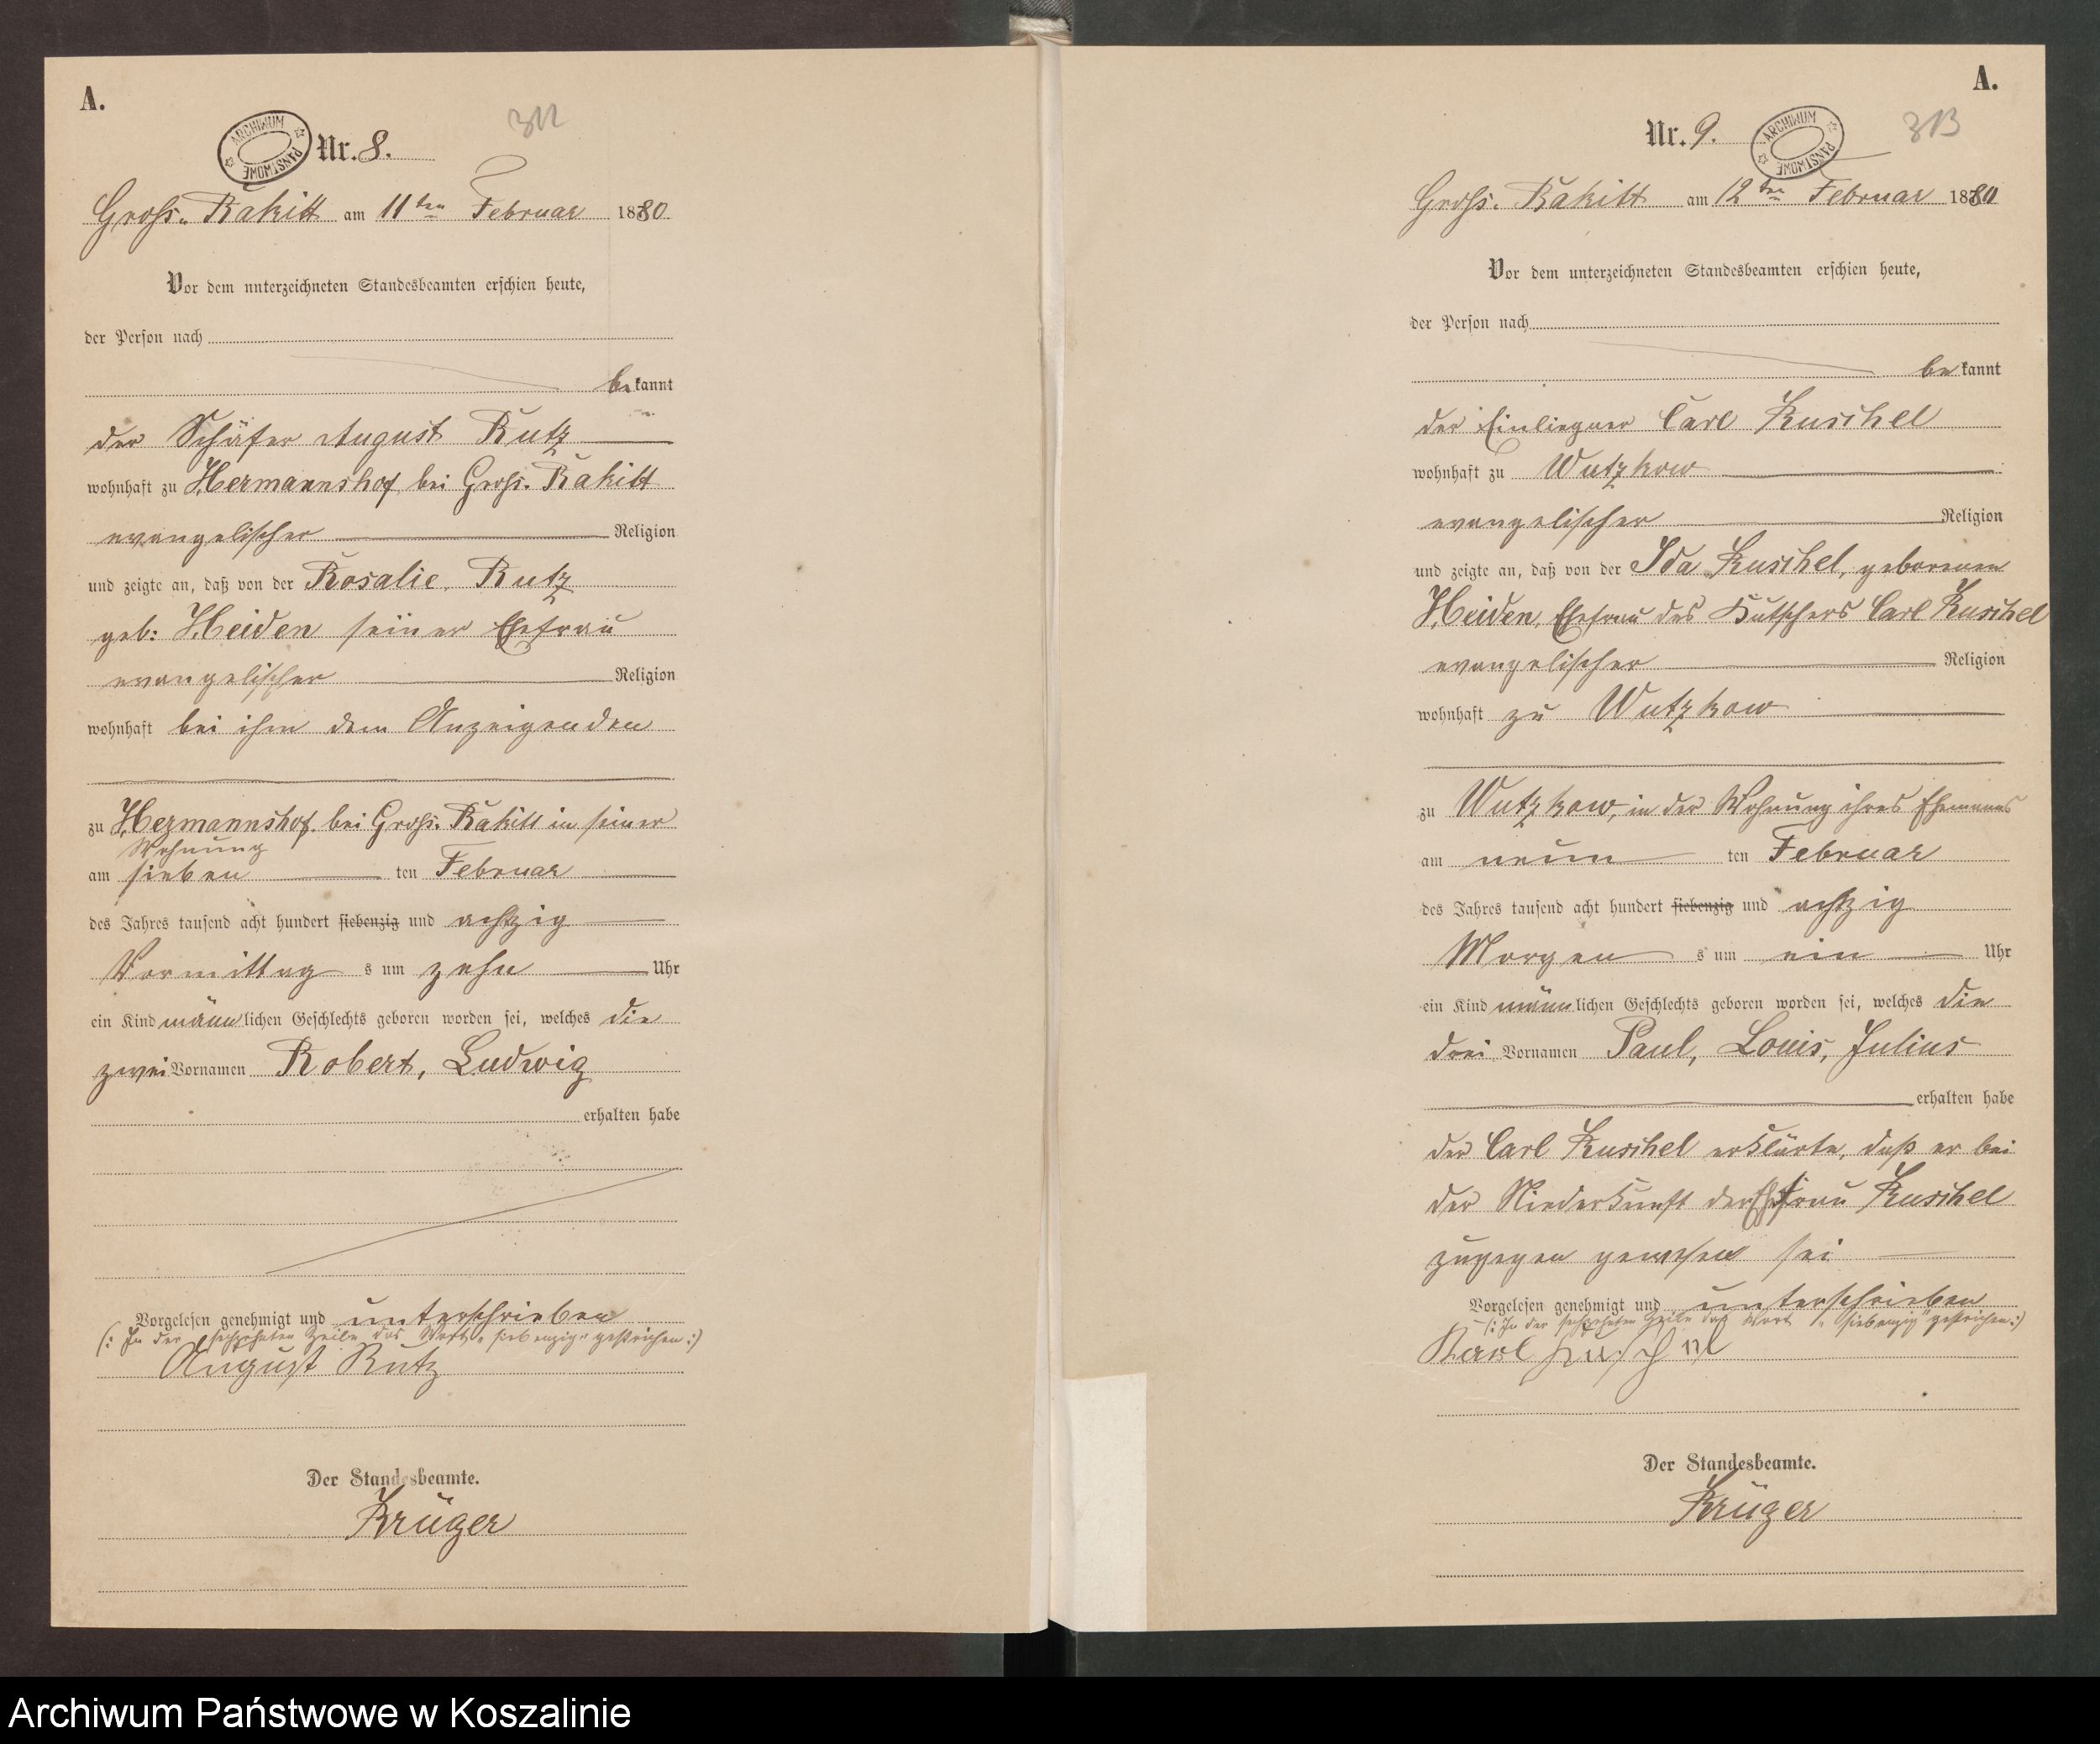 A.
ARCHIWUM PAŃSTWOWE
Nr. 8.
312
Gross-Rakitt am 11ten Februar 1880
Vor dem unterzeichneten Standesbeamten erschien heute,
der Person nach
bekannt
der Schäfer August Rutz
wohnhaft zu Hermannshof, bei Gross-Rakitt
evangelischer Religion
und zeigte an, daß von der Rosalie Rutz
geb: Heiden seiner Ehefrau
evangelischer Religion
wohnhaft bei ihm dem Anzeigenden
zu Hermannshof bei Gross-Rakitt in seiner
Wohnung
am sieben ten Februar
des Jahres tausend acht hundert siebenzig und achtzig
Vormittag s um zehn Uhr
ein Kind männlichen Geschlechts geboren worden sei, welches die
zwei Vornamen Robert, Ludwig
erhalten habe
Vorgelesen genehmigt und unterschrieben
(: In der sechzehnten Zeile das Wort "siebenzig" gestrichen :)
August Rutz
Der Standesbeamte.
Krüger
A.
Nr. 9.
ARCHIWUM PAŃSTWOWE
313
Gross-Rakitt am 12ten Februar 1880
Vor dem unterzeichneten Standesbeamten erschien heute,
der Person nach
bekannt
der Einlieger Carl Kuschel
wohnhaft zu Wutzkow
evangelischer Religion
und zeigte an, daß von der Ida Kuschel, geborenen
Heiden, Ehefrau des Kutschers Carl Kuschel
evangelischer Religion
wohnhaft zu Wutzkow
zu Wutzkow, in der Wohnung ihres Ehemanns
am neun ten Februar
des Jahres tausend acht hundert siebenzig und achtzig
Morgen s um ein Uhr
ein Kind männlichen Geschlechts geboren worden sei, welches die
drei Vornamen Paul, Louis, Julius
erhalten habe
der Carl Kuschel erklärte, daß er bei
der Niederkunft der Ehefrau Kuschel
zugegen gewesen sei
Vorgelesen genehmigt und unterschrieben
(: In der sechzehnten Zeile das Wort "siebenzig" gestrichen :)
Karl Kuschel
Der Standesbeamte.
Krüger
Archiwum Państwowe w Koszalinie